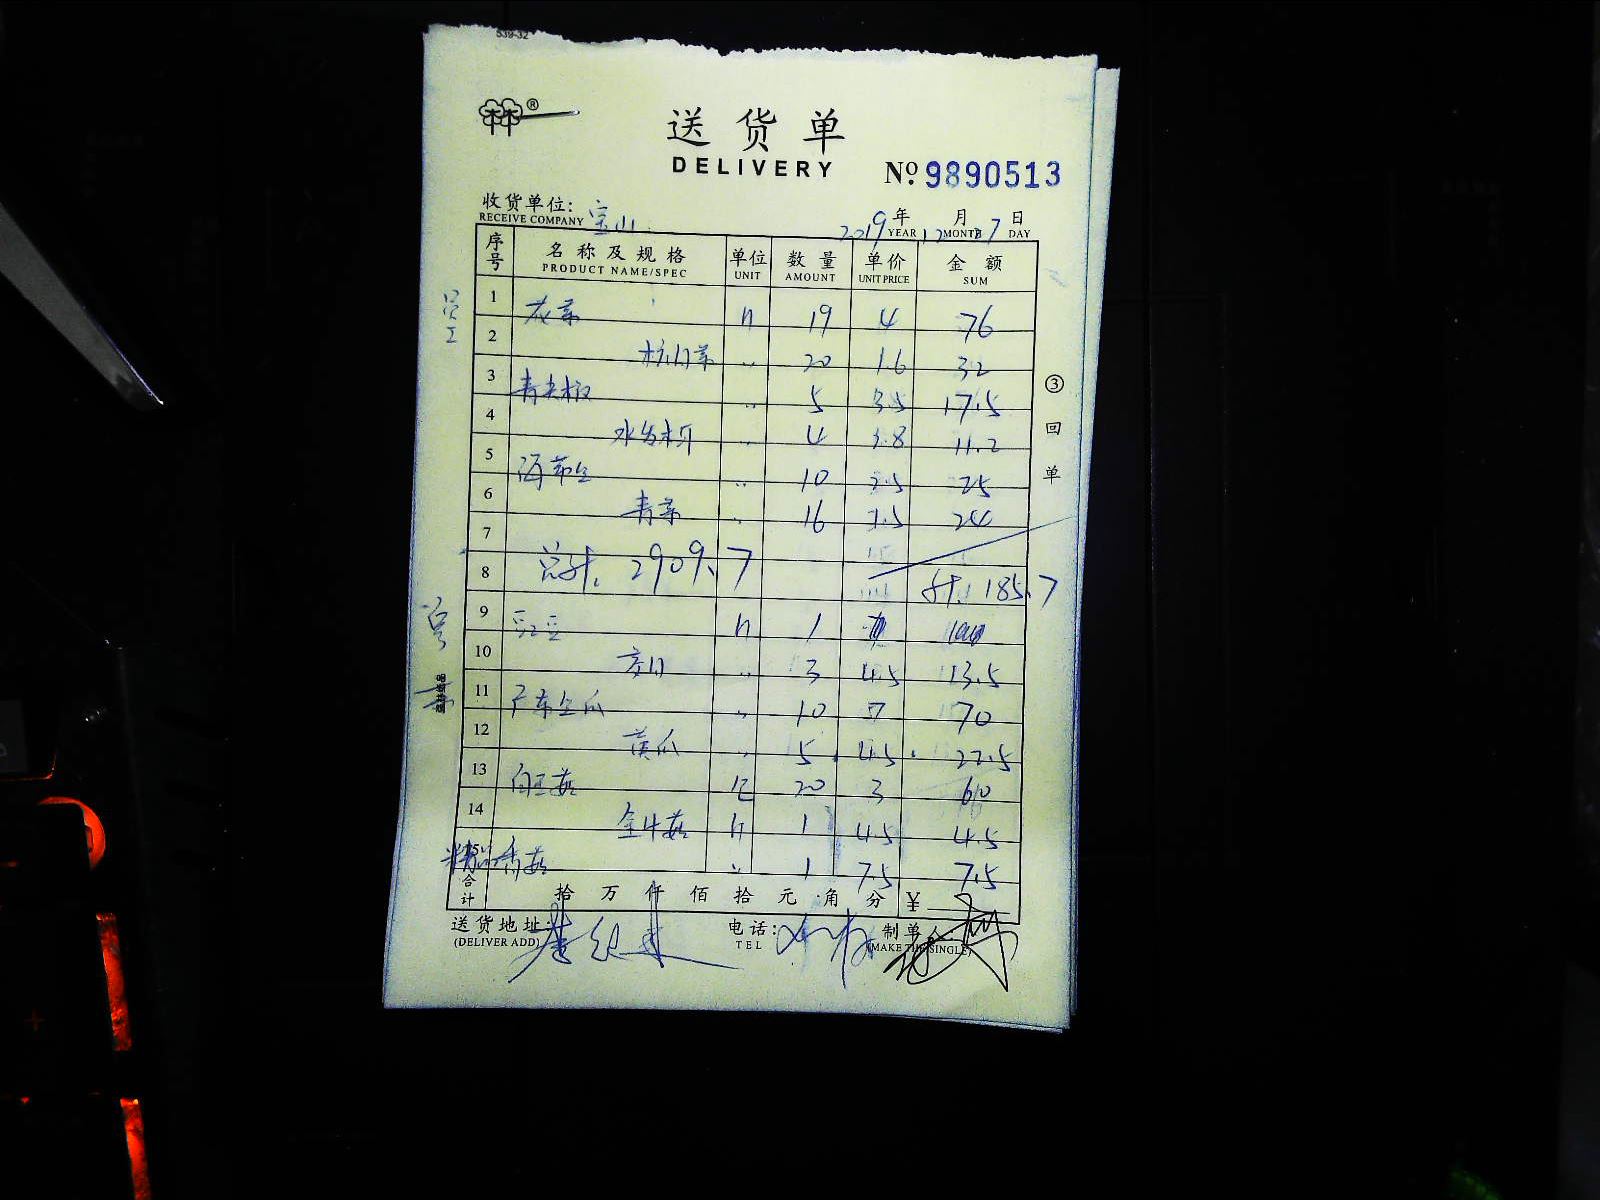 539-32
®
送货单
DELIVERY
No. 9890513
收货单位: 宝山
RECEIVE COMPANY
2019 年 YEAR 12 月 MONTH 7 日 DAY
序号 名称及规格 单位 数量 单价 金额
PRODUCT NAME/SPEC UNIT AMOUNT UNIT PRICE SUM
员工
1 花菜 斤 19 4 76
2 杭白菜 〃 20 1.6 32
3 青尖椒 〃 5 3.5 17.5
4 〃 4 2.8 11.2
5 海带 〃 10 2.5 25
6 青菜 〃 16 1.5 24
7
8 总计. 2909.7 计. 185.7
9 豇豆 斤 1
10 〃 3 4.5 13.5
11 广东全瓜 〃 10 7 70
12 黄瓜 〃 5 4.5 22.5
13 白玉菇 包 20 3 60
14 金针菇 斤 1 4.5 4.5
15 精品香菇 〃 1 7.5 7.5
合计 拾 万 仟 佰 拾 元 角 分 ¥
送货地址: 电话: 制单人:
(DELIVER ADD) TEL (MAKE THE SINGLE)
③回单